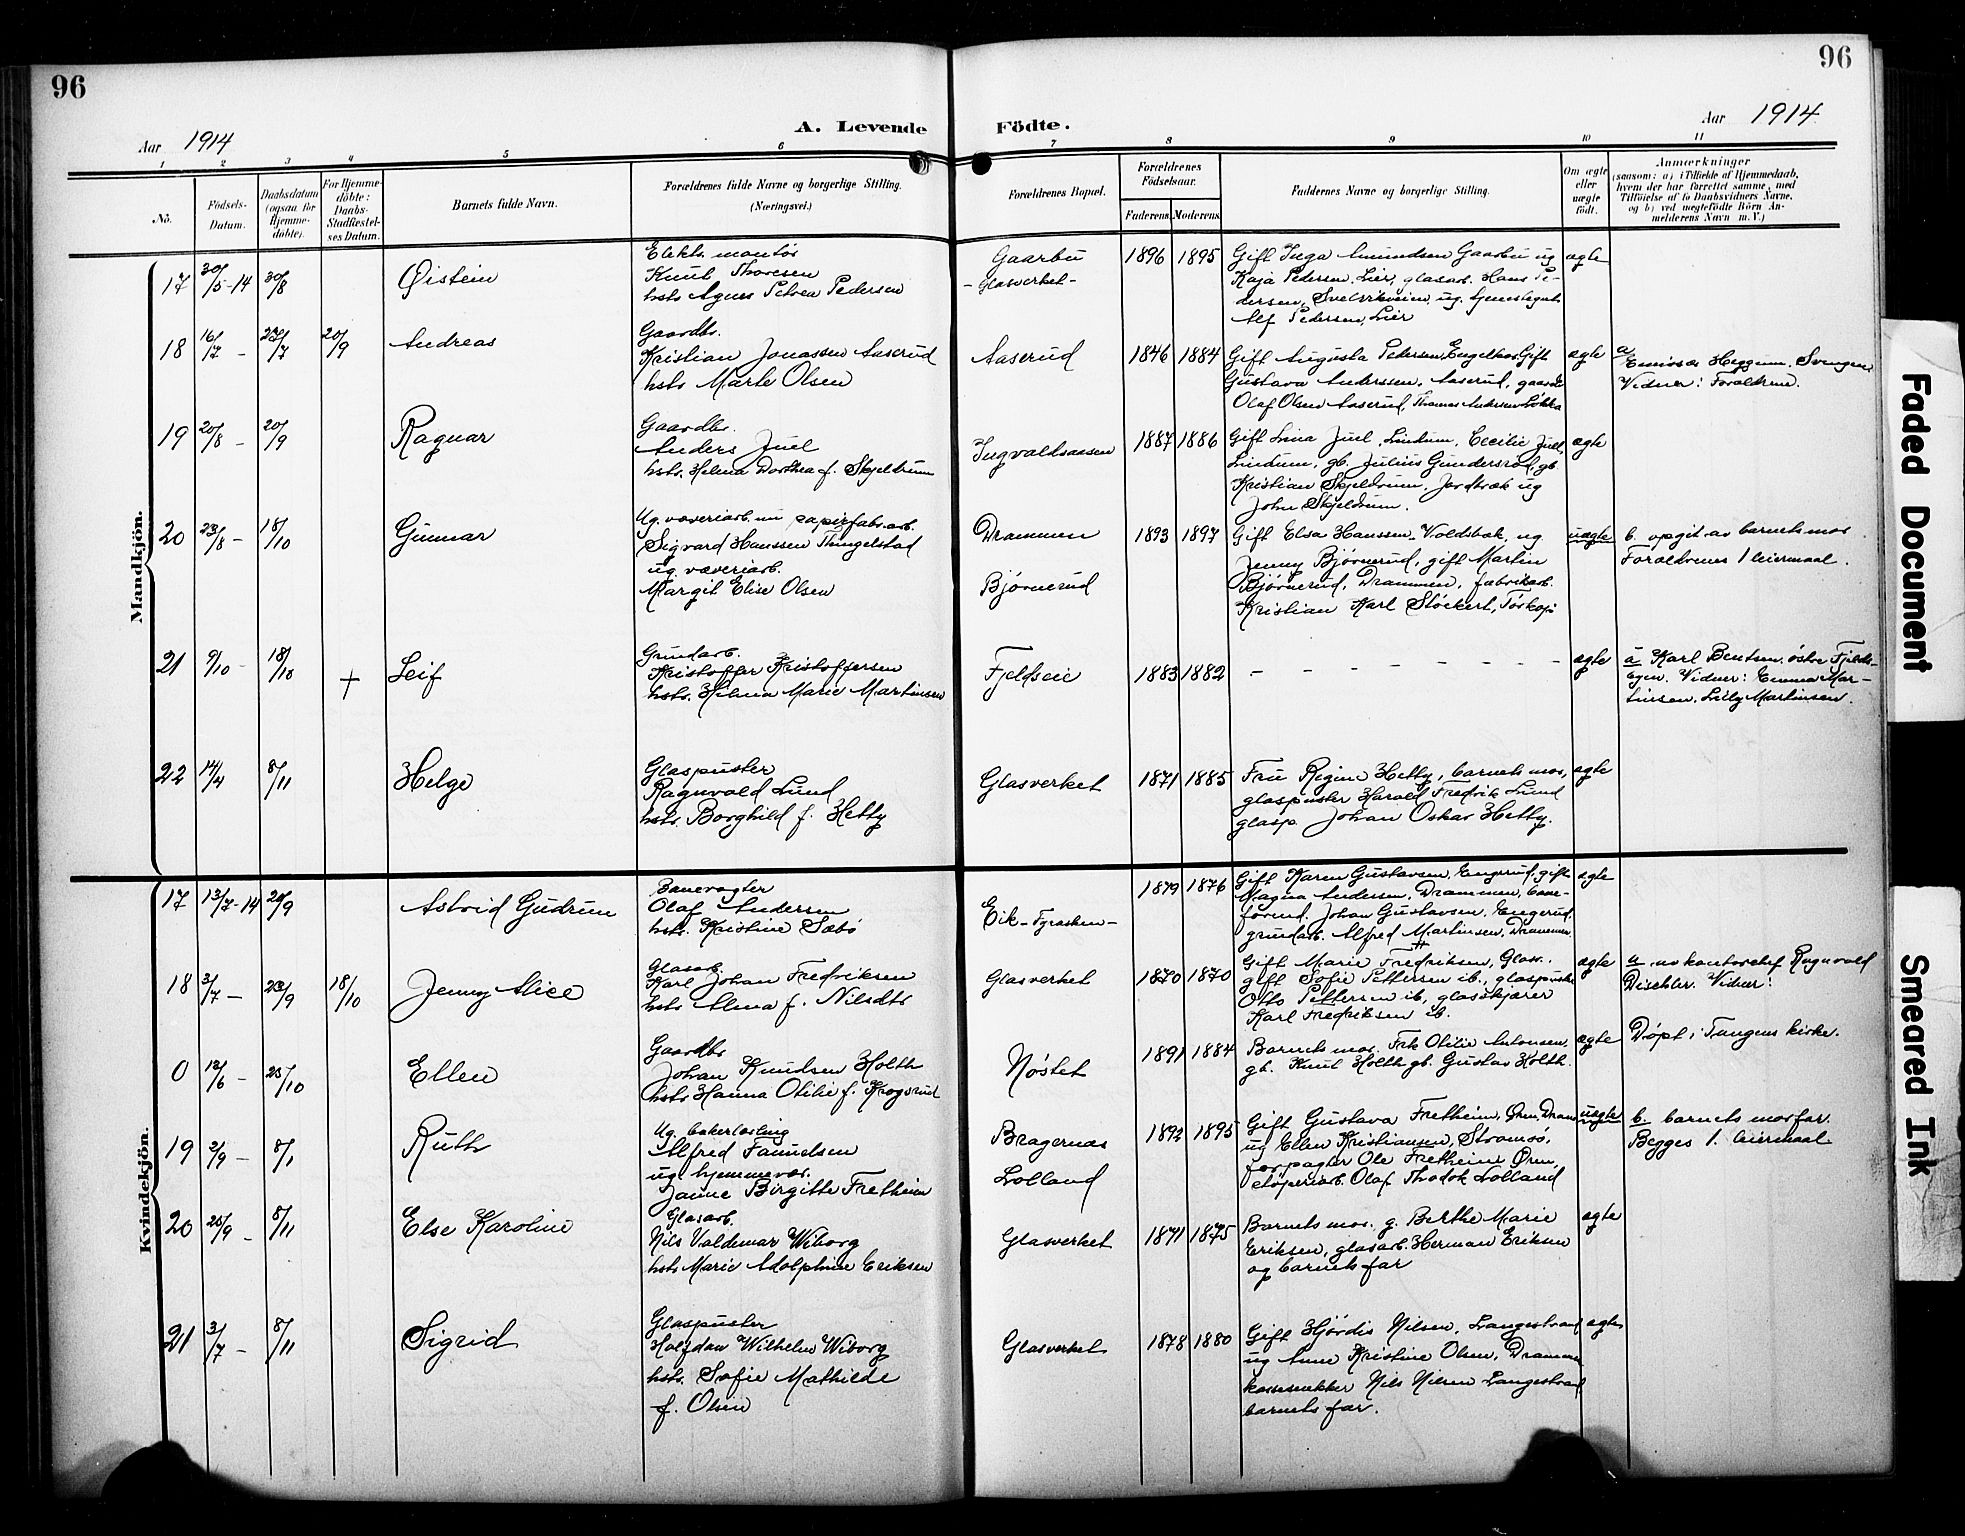 96
96
Aar 1914
A. Levende
Födte.
Aar 1914
1
2
3
4
5
6
7
8
9
10
11
No.
Födsels-
Datum.
Daabsdatum
(ogsaa for
Hjemme-
döbte).
For Hjemme-
döbte:
Daabs-
Stadfæstel-
ses Datum.
Barnets fulde Navn.
Forældrenes fulde Navne og borgerlige Stilling.
(Næringsvei.)
Forældrenes Bopæl.
Forældrenes
Födselsaar.
Faderens.
Moderens.
Faddernes Navne og borgerlige Stilling.
Om ægte
eller
uægte
födt.
Anmærkninger
(saasom: a) i Tilfælde af Hjemmedaab,
hvem der har forrettet samme, med
Tilföielse af to Daabsvidners Navne,
og b) ved uægtefödte Börn An-
melderens Navn m. V.)
Mandkjön.
17 30/5-14 30/8 Øistein
Elektr. montør
Knut Thoresen
hstr Agnes Petrea Pedersen
Gaarbu
- Glasverket -
1896 1895
Gift Inga Amundsen Gaarbu ug
Kaja Pedersen, Lier, glasarb. Hans Pe-
dersen, Svelvikveien, ug. tjenestegut
Alf Pedersen, Lier
ægte
18 16/7 - 27/7 20/9 Andreas
Gaardbr.
Kristian Jonassen Aaserud
hstr Marte Olsen
Aaserud
1846 1884
Gift Augusta Pedersen, Gift
Gustava Anderssen, Aaserud, gaardb
Olaf Olsen Aaserud, Thomas Andersen Løkka
ægte
a Heggum, Svingen
Vidner: Forældrene.
19 20/8 - 20/9 Ragnar
Gaardbr.
Anders Juel
hstr. Helena Dorthea f. Skjeldrum
Ingvaldsaasen
1887 1886
Gift Lina Juel, Lindum, Cecilie Juel,
Lindum, gb. Julius Gundersrød, gb.
Kristian Skjeldrum, Jordbræk ug
John Skjeldrum.
ægte
20 23/8 - 18/10 Gunnar
Ug. væveriarb. nu papirfabr.arb.
Sigvard Hanssen Thingelstad
ug. væveriarb.
Margit Elise Olsen
Drammen
Bjørnerud
1893 1897
Gift Elsa Hanssen, Voldsbak, ug.
Jenny Bjørnerud, gift Martin
Bjørnerud, Drammen, fabrikarb.
Kristian Karl Støckert,
uægte
b. opgit av barnets mor
Forældrenes 1 leiermaal.
21 9/10 - 18/10 + Leif
Grundarb.
Kristoffer Kristoffersen
hstr. Hilma Marie Martinsen
Fjeldseie
1883 1882
- - - - - - - - -
ægte
a Karl Bentsen, østre Fjelds-
Egen. Vidner: Emma Mar-
tinsen, Lilly Martinsen.
22 14/4 8/11 Helge
Glaspuster
Ragnvald Lund
hstr. Borghild f. Hetty
Glasverket
1871 1885
Fru Regine Hetty, barnets mor,
glaspuster Harald Fredrik Lund
glasp. Johan Oskar Hetty.
ægte
Kvindekjön.
17 13/7-14 20/9 Astrid Gudrun
Banevogter
Olaf Andersen
hstr. Kristine Sæbø
Eik - Fyrasken -
1879 1876
Gift Karen Gustavsen, Engerud, gift
Magna Andersen, Drammen, bane-
formd. Johan Gustavsen, Engerud,
grundarb. Alfred Martinsen, Drammen
ægte
18 3/7 - 20/9 18/10 Jenny Alice
Glasarb.
Karl Johan Fredriksen
hstr Alma f. Nilsdtr
Glasverket
1870 1870
Gift Marie Fredriksen, Glasv.,
gift Sofie Pettersen ib., glaspuster
Otto Pettersen ib, glasskjærer
Karl Fredriksen ib.
ægte
a. av kontorchef Ragnvald
Dischler. Vidner:
0 12/6 - 25/10 Ellen
Gaardbr
Johan Knudsen Holth
hstr Hanna Otilie f. Krogsrud
Nøstet
1891 1884
Barnets mor, Frk Otilie Antonsen,
gb. Knut Holth gb. Gustav Holth.
ægte
Døpt i Tangens kirke.
19 2/9 - 8/1 Ruth
Ug. bakerlærling
Alfred
ug. hjemmevær.
Janne Birgitte Fretheim
Bragernæs
Lolland
1892 1895
Gift Gustava Fretheim, Øren, Dram
ug Ellen Kristiansen, Strømsø,
forpagter Ole Fretheim Øren,
støperiarb. Olaf Lolland
uægte
b. barnets morfar.
Begges 1. leiermaal
20 25/9 - 8/11 Else Karoline
Glasarb.
Nils Valdemar Wiborg
hstr Marie Adolphine Eriksen
Glasverket
1871 1875
Barnets mor, g. Berthe Marie
Eriksen, glasarb. Herman Eriksen
og barnets far
ægte
21 3/7 - 8/11 Sigrid
Glaspuster
Halfdan Wilhelm Wiborg
hstr. Sofie Mathilde
f. Olsen
Glasverket
1878 1880
Gift Hjørdis Nilsen, Langestrand
ug Anne Kristine Olsen, Drammen
kassesnekker Nils Nilsen Langestrand
barnets far.
ægte
Faded Document
Smeared Ink